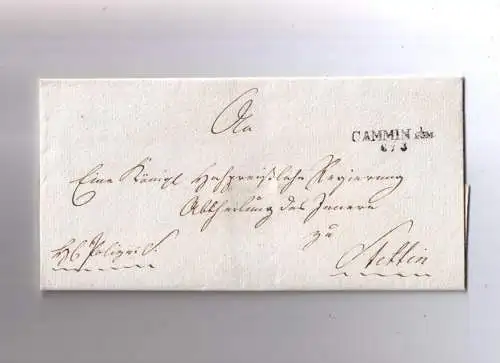 An
CAMMIN
6/3
Eine Königl Hochpreißliche Regierung
Abtheilung des Innern
zu
Stettin
HG Polizei S.